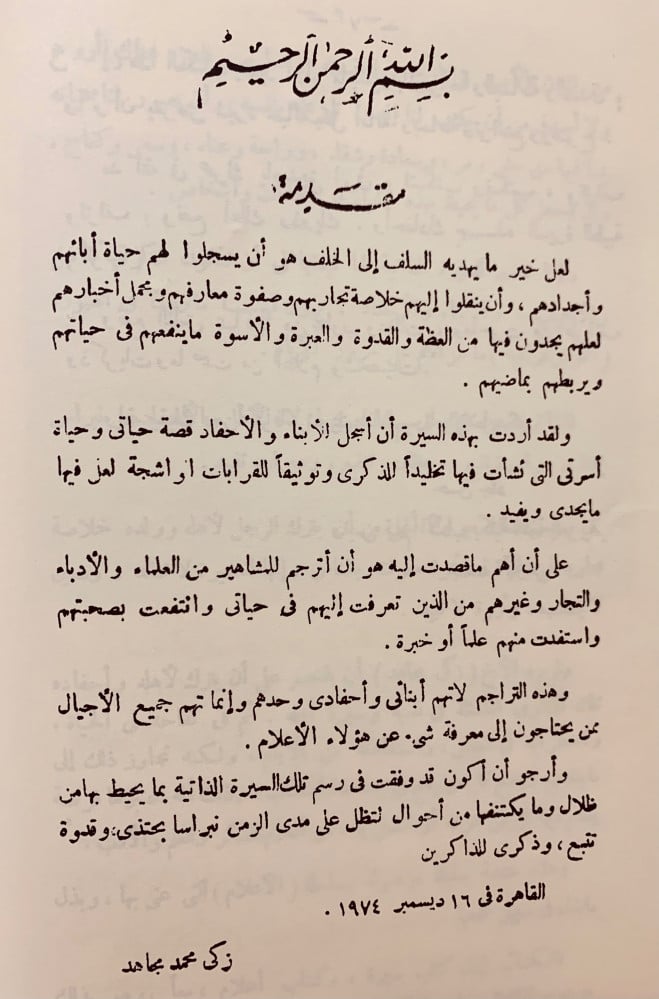 بسم الله الرحمن الرحيم
مقدمة
لعل خير ما يهديه السلف إلى الخلف هو أن يسجلوا لهم حياة أبائهم
وأجدادهم ، وأن ينقلوا إليهم خلاصة تجاربهم وصفوة معارفهم ومجمل أخبارهم
لعلهم يجدون فيها من العظة والقدوة والعبرة والأسوة ماينفعهم فى حياتهم
ويربطهم بماضيهم .
ولقد أردت بهذه السيرة أن أسجل للأبناء والأحفاد قصة حياتى وحياة
أسرتى التى نشأت فيها تخليداً للذكرى وتوثيقاً للقرابات الواشجة لعل فيها
مايجدى ويفيد .
على أن أهم ماقصدت إليه هو أن أترجم للمشاهير من العلماء والأدباء
والتجار وغيرهم من الذين تعرفت إليهم فى حياتى وانتفعت بصحبتهم
واستفدت منهم علماً أو خبرة .
وهذه التراجم لاتهم أبنائى وأحفادى وحدهم وإنما تهم جميع الأجيال
ممن يحتاجون إلى معرفة شىء عن هؤلاء الأعلام .
وأرجو أن أكون قد وفقت فى رسم تلك السيرة الذاتية بما يحيط بها من
ظلال وما يكتنفها من أحوال لتظل على مدى الزمن نبراسا يحتذى، وقدوة
تتبع ، وذكرى للذاكرين
القاهرة فى ١٦ ديسمبر ١٩٧٤ .
زكى محمد مجاهد